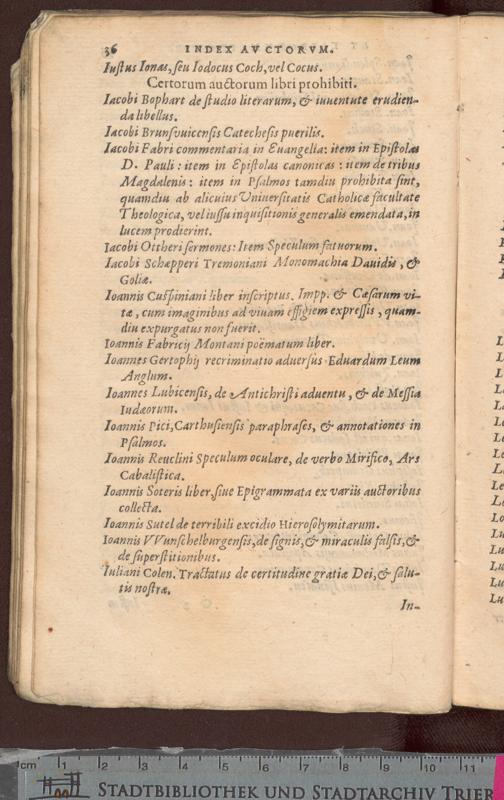 36 INDEX AVCTORVM.
Iustus Ionas, seu Iodocus Coch, vel Cocus.
Certorum auctorum libri prohibiti.
Iacobi Bophart de studio literarum, & iuuentute erudien-
da libellus.
Iacobi Brunsuuicensis Catechesis puerilis.
Iacobi Fabri commentaria in Euangelia: item in Epistolas
D. Pauli: item in Epistolas canonicas: item de tribus
Magdalenis: item in Psalmos tamdiu prohibita sint,
quamdiu ab alicuius Vniuersitatis Catholicæ facultate
Theologica, vel iussu inquisitionis generalis emendata, in
lucem prodierint.
Iacobi Ottheri sermones: Item Speculum fatuorum.
Iacobi Schæpperi Tremoniani Monomachia Dauidis, &
Goliæ.
Ioannis Cuspiniani liber inscriptus. Impp. & Cæsarum vi-
tæ, cum imaginibus ad viuam effigiem expressis, quam-
diu expurgatus non fuerit.
Ioannis Fabricij Montani poëmatum liber.
Ioannes Gertophij recriminatio aduersus Eduardum Leum
Anglum.
Ioannes Lubicensis, de Antichristi aduentu, & de Messia
Iudæorum.
Ioannis Pici, Carthusiensis paraphrases, & annotationes in
Psalmos.
Ioannis Reuclini Speculum oculare, de verbo Mirifico, Ars
Cabalistica.
Ioannis Soteris liber, siue Epigrammata ex variis auctoribus
collecta.
Ioannis Sutel de terribili excidio Hierosolymitarum.
Ioannis VVunschelburgensis, de signis, & miraculis falsis, &
de superstitionibus.
Iuliani Colen. Tractatus de certitudine gratiæ Dei, & salu-
tis nostræ.
In-
cm 1 2 3 4 5 6 7 8 9 10 11
STADTBIBLIOTHEK UND STADTARCHIV TRIER